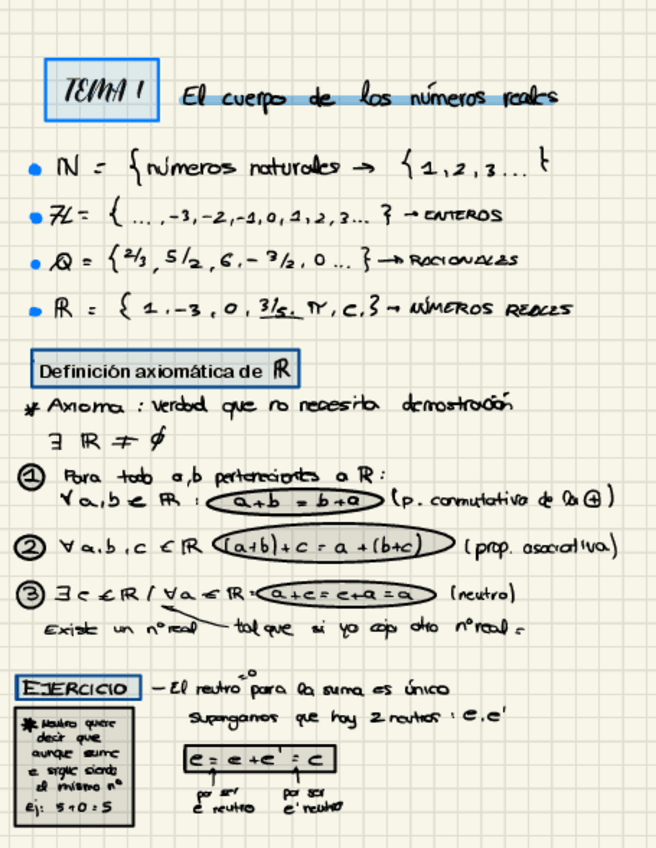 TEMA 1 El cuerpo de los números reales
• ℕ = {números naturales → {1,2,3...}
• ℤ = {..., -3,-2,-1,0,1,2,3...} → ENTEROS
• ℚ = {2/3, 5/2, 6, -3/2, 0 ...} → RACIONALES
• ℝ = {1,-3,0,3/5, π, e,} → NÚMEROS REALES
Definición axiomática de ℝ
* Axioma : verdad que no necesita demostración
∃ ℝ ≠ ∅
① Para todo a,b pertenecientes a ℝ:
∀ a,b ∈ ℝ : a+b = b+a (p. conmutativa de la ⊕)
② ∀ a,b,c ∈ ℝ (a+b)+c = a+(b+c) (prop. asociativa)
③ ∃ e ∈ ℝ / ∀a ∈ ℝ: a+e = e+a = a (neutro)
Existe un nº real tal que si yo cojo otro nº real =
EJERCICIO — El neutro=0 para la suma es único
Supongamos que hay 2 neutros : e,e'
* Neutro quiere
decir que
aunque sume
e sigue siendo
el mismo nº
Ej: 5+0=5
e = e + e' = e
por ser e neutro
por ser e' neutro